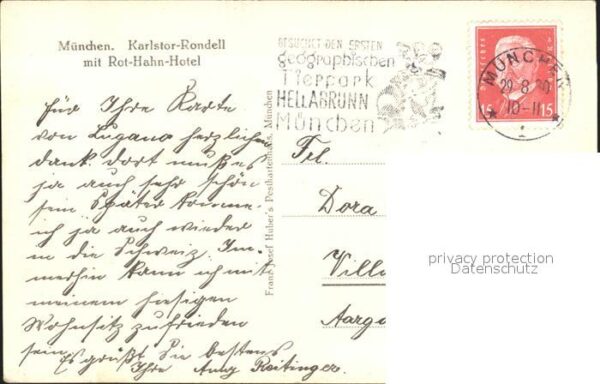 München. Karlstor-Rondell
mit Rot-Hahn-Hotel
BESUCHET DEN ERSTEN
geographischen
Tierpark
HELLABRUNN
München
MÜNCHEN
29.8.30
10-11
15 15
Für Ihre Karte
von Lugano herzlichen
dank. dort muß es
ja auch sehr schön
sein. Später komme
ich ja auch wieder
in die Schweiz. Im-
merhin kann ich mit
meinem hiesigen
Wohnsitz zufrieden
sein. Es grüßt Sie bestens
Ihre Amy Reitinger.
Franz Josef Huber's Postkartenhaus, München
Frl.
Dora
Villa
Aarga
privacy protection
Datenschutz